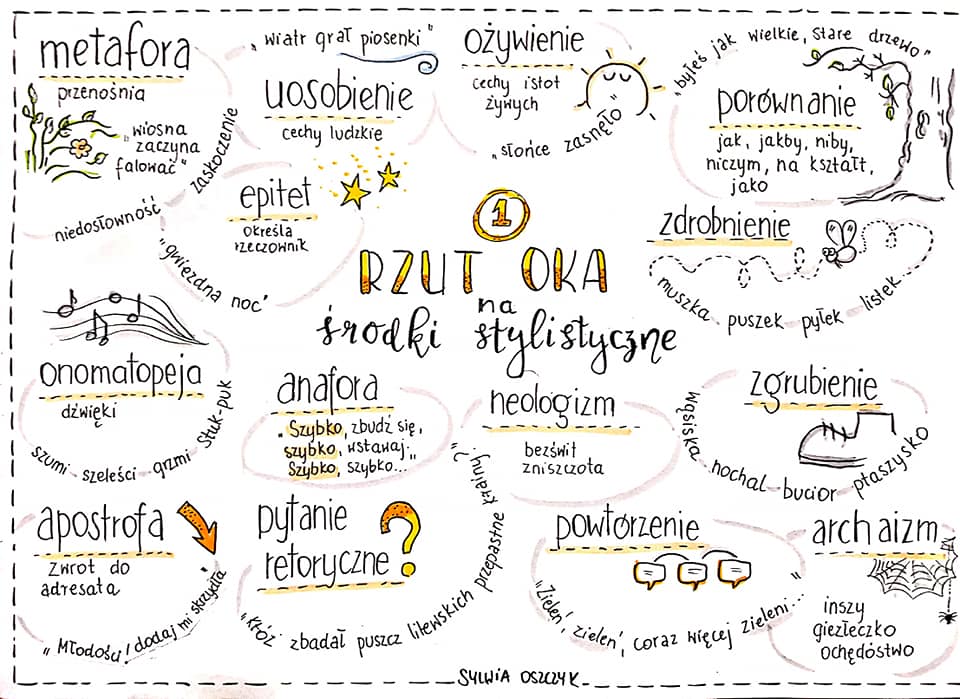 metafora
przenośnia
„wiosna
zaczyna
falować”
niedosłowność
zaskoczenie
„wiatr grał piosenki”
uosobienie
cechy ludzkie
ożywienie
cechy istot
żywych
„słońce zasnęło”
„byłeś jak wielkie, stare drzewo”
porównanie
jak, jakby, niby,
niczym, na kształt,
jako
epitet
określa
rzeczownik
„gwiezdna noc”
1
RZUT OKA
na
środki stylistyczne
zdrobnienie
muszka puszek pyłek listek
onomatopeja
dźwięki
szumi szeleści grzmi stuk-puk
anafora
„Szybko, zbudź się,
szybko, wstawaj.„
Szybko, szybko...
neologizm
bezświt
zniszczota
zgrubienie
wąsiska nochal bucior ptaszysko
apostrofa
zwrot do
adresata
„Młodości! dodaj mi skrzydła”
pytanie
retoryczne
„Któż zbadał puszcz litewskich przepastne krainy?”
powtórzenie
„Zieleń, zieleń, coraz więcej zieleni...”
archaizm
inszy
giezłeczko
ochędóstwo
SYLWIA OSZCZYK